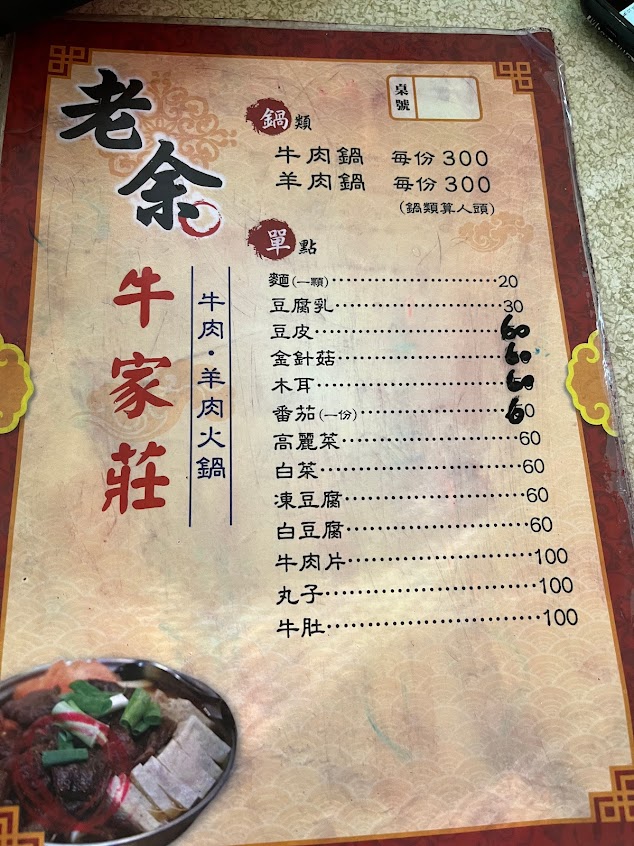 老余
牛家莊
牛肉·羊肉火鍋
桌號
鍋類
牛肉鍋 每份300
羊肉鍋 每份300
(鍋類算人頭)
單點
麵(一顆)⋯⋯⋯⋯⋯⋯⋯⋯20
豆腐乳⋯⋯⋯⋯⋯⋯⋯⋯30
豆皮⋯⋯⋯⋯⋯⋯⋯⋯60
金針菇⋯⋯⋯⋯⋯⋯⋯⋯60
木耳⋯⋯⋯⋯⋯⋯⋯⋯60
番茄(一份)⋯⋯⋯⋯⋯⋯⋯⋯60
高麗菜⋯⋯⋯⋯⋯⋯⋯⋯60
白菜⋯⋯⋯⋯⋯⋯⋯⋯60
凍豆腐⋯⋯⋯⋯⋯⋯⋯⋯60
白豆腐⋯⋯⋯⋯⋯⋯⋯⋯60
牛肉片⋯⋯⋯⋯⋯⋯⋯⋯100
丸子⋯⋯⋯⋯⋯⋯⋯⋯100
牛肚⋯⋯⋯⋯⋯⋯⋯⋯100